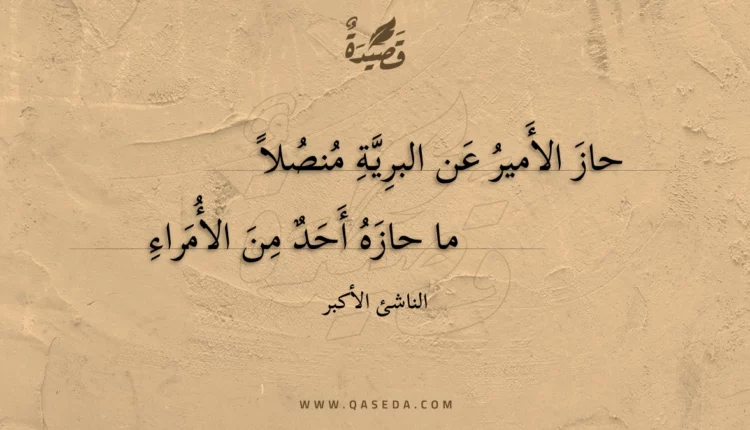 قَصَيْدَةٌ
حازَ الأَميرُ عَن البرِيَّةِ مُنصُلاً
ما حازَهُ أَحَدٌ مِنَ الأُمَراءِ
الناشئ الأكبر
WWW.QASEDA.COM